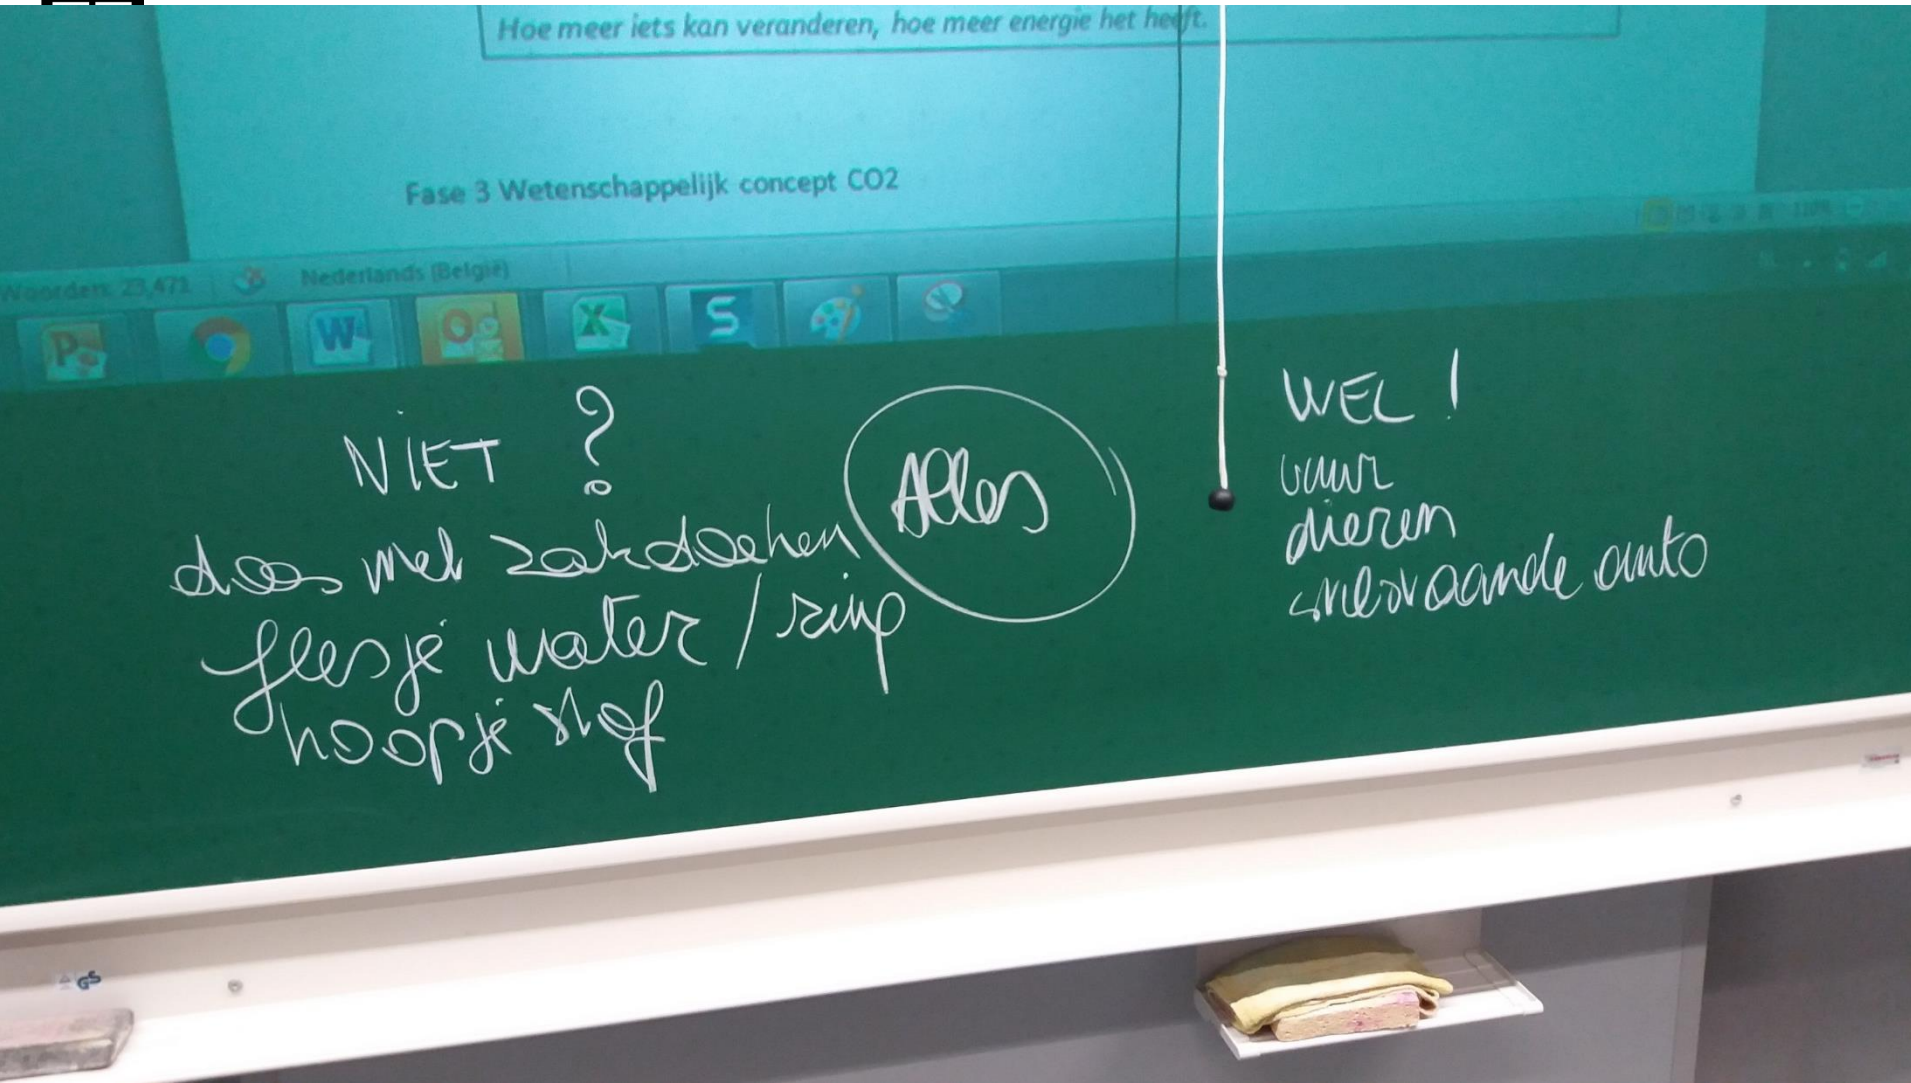 Hoe meer iets kan veranderen, hoe meer energie het heeft.
Fase 3 Wetenschappelijk concept CO2
Woorden: 23,471 Nederlands (België)
NIET ?
doos met zakdoeken
flesje water / ring
hoopje stof
Alles
WEL !
vuur
dieren
auto